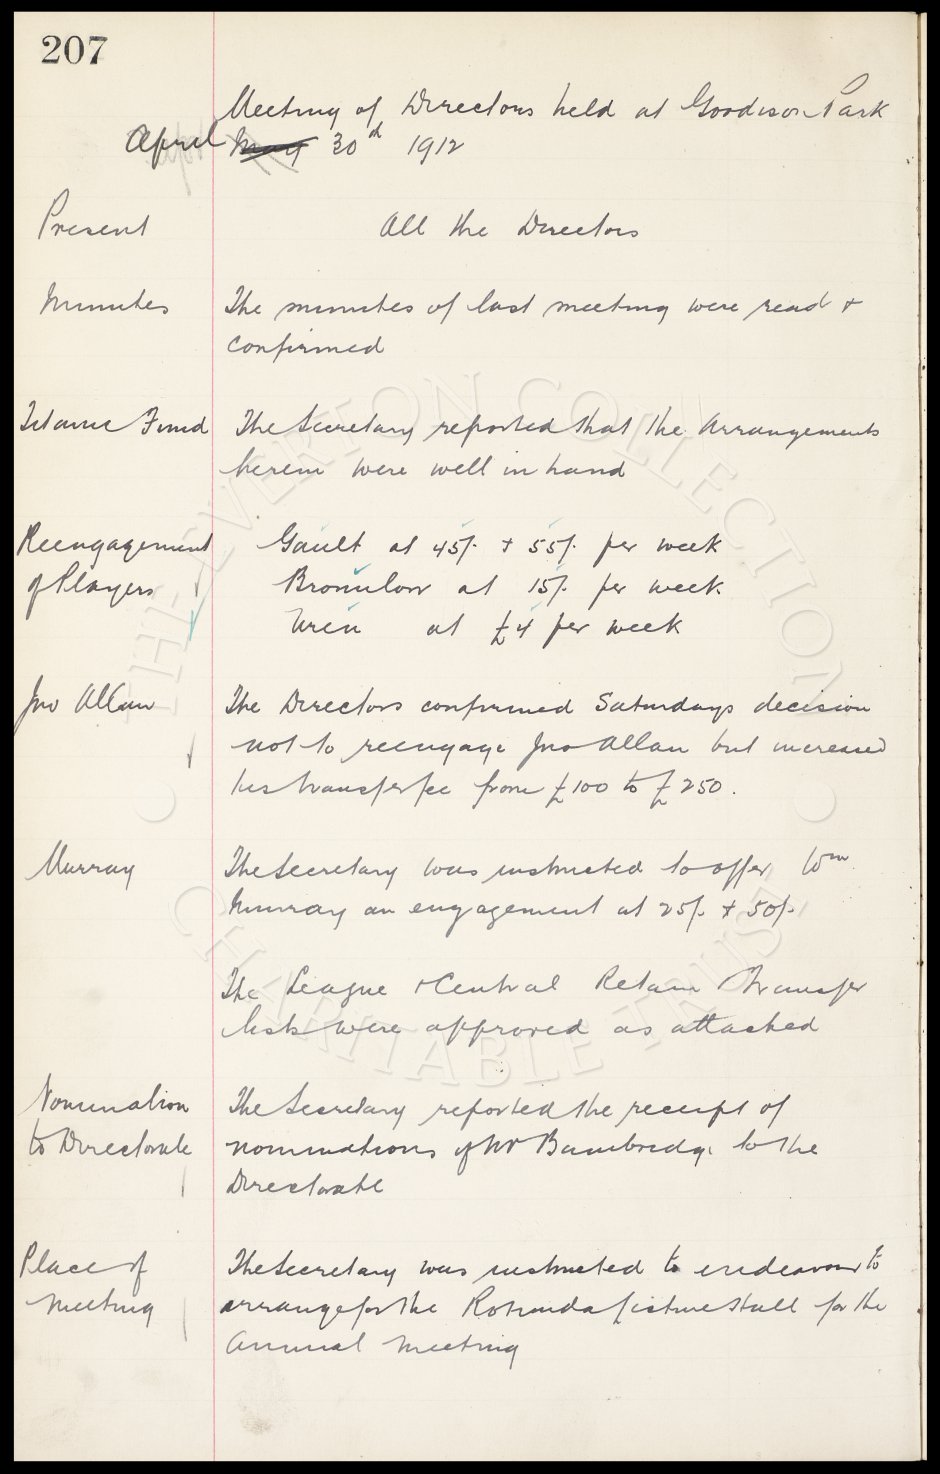 207
Meeting of Directors held at Goodison Park
April May 30d 1912
Present All the Directors
Minutes The minutes of last meeting were read +
confirmed
Titanic Fund The Secretary reported that the Arrangements
herein were well in hand
Reengagement Gault at 45/- + 55/- per week
of Players Bromilow at 15/- per week
Uren at £4 per week
Jno Allan The Directors confirmed Saturdays decision
not to reengage Jno Allan but increased
his transfer fee from £100 to £250.
Murray The Secretary was instructed to offer Wm
Murray an engagement at 25/- + 50/-
The League + Central Retain + Transfer
lists were approved as attached
Nomination The Secretary reported the receipt of
to Directorate nominations of Mr Bainbridge to the
Directorate
Place of The Secretary was instructed to endeavour to
meeting arrange for the Rotunda Lecture Hall for the
Annual Meeting
THE EVERTON COLLECTION
CHARITABLE TRUST